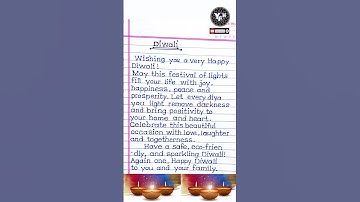 Diwali
Wishing you a very Happy
Diwali!
May this festival of lights
fill your life with joy,
happiness, peace and
prosperity. Let every diya
you light remove darkness
and bring positivity to
your home and heart.
Celebrate this beautiful
occasion with love, laughter
and togetherness.
Have a safe, eco-frien
-dly, and sparkling Diwali!
Again one, Happy Diwali
to you and your family.